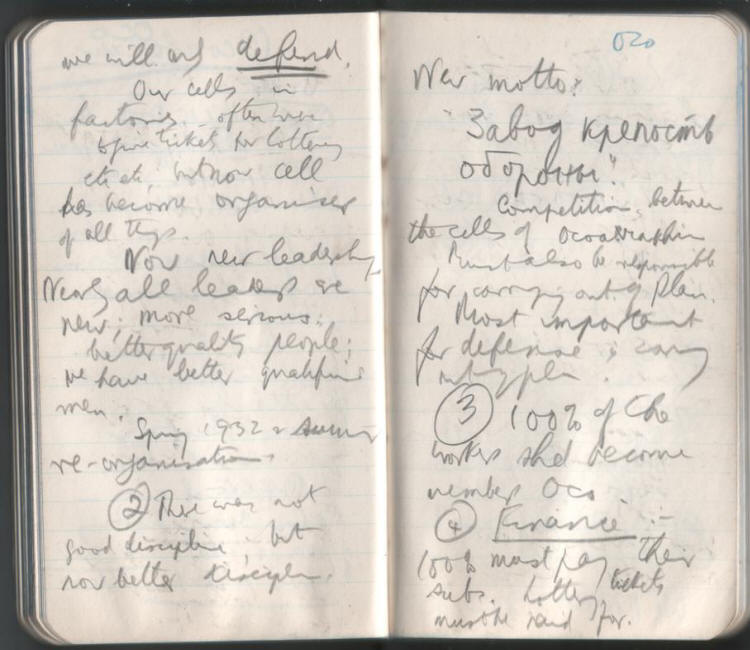 we will not defend.
Our cells in
factories, often were
tickets for lottery
etc etc, but now cell
has become organiser
of all things.
Now new leadership
Nearly all leaders are
new; more serious;
better quality people;
we have better qualified
men.
Spring 1932 a
re-organisation.
② There was not
good discipline; but
now better discipline.
Oso
New motto:
"Завод крепость
обороны."
Competition between
the cells of
Must also be responsible
for carrying out of Plan.
Most important
for defense is carry
out of plan.
③ 100% of the
workers shd become
member Oso.
④ Finance :-
100% must pay their
subs. Lottery tickets
must be paid for.